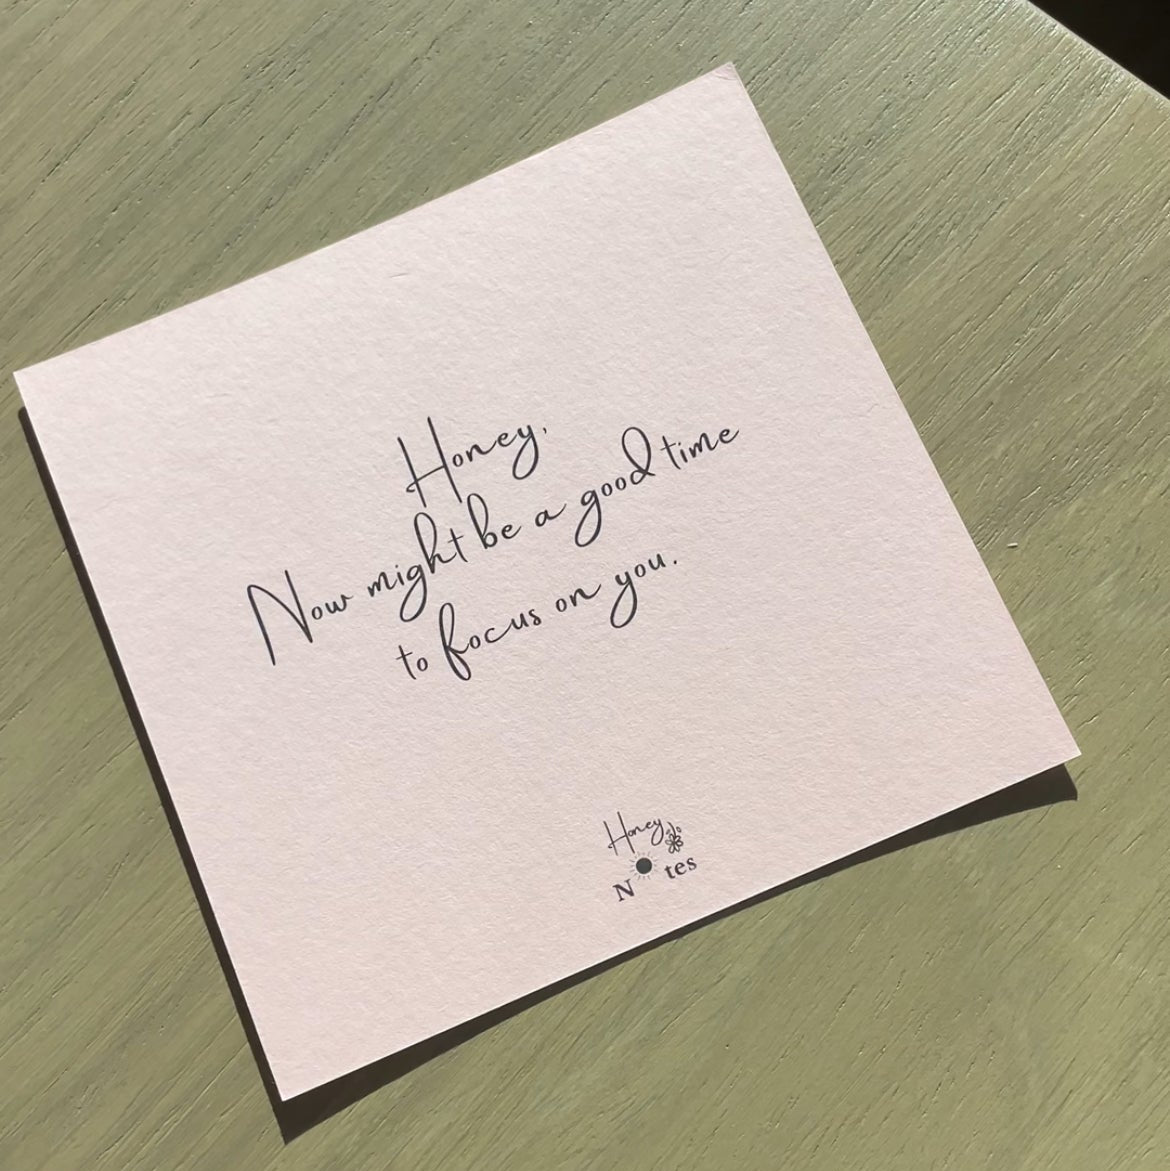 Honey,
Now might be a good time
to focus on you.
Honey
Notes